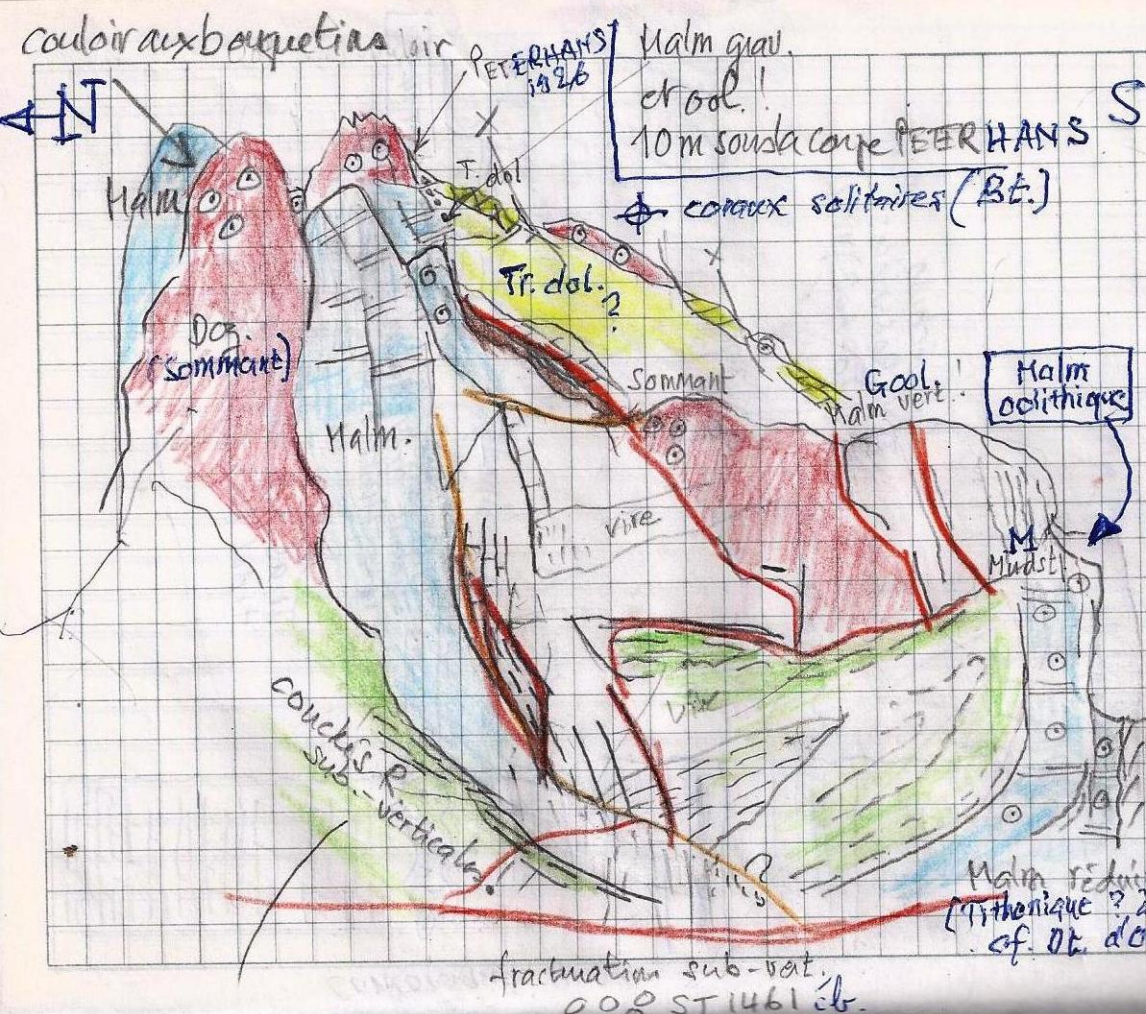 couloir aux bouquetins
PETERHANS
1926
Malm grav.
et ool.!
10 m sous la coupe PEERHANS
coraux solitaires (Bt.)
N
S
T. dol
Malm
Tr. dol.
?
Dog.
(Sommant)
Sommant
Gool.!
Malm vert.!
Malm
oolithique
Malm.
vire
M
Mudst.
vire
couches R.
sub-verticales.
?
Malm rédui
(Tithonique ?
cf. Dt. d'O
fracturation sub-vert.
ST 1461